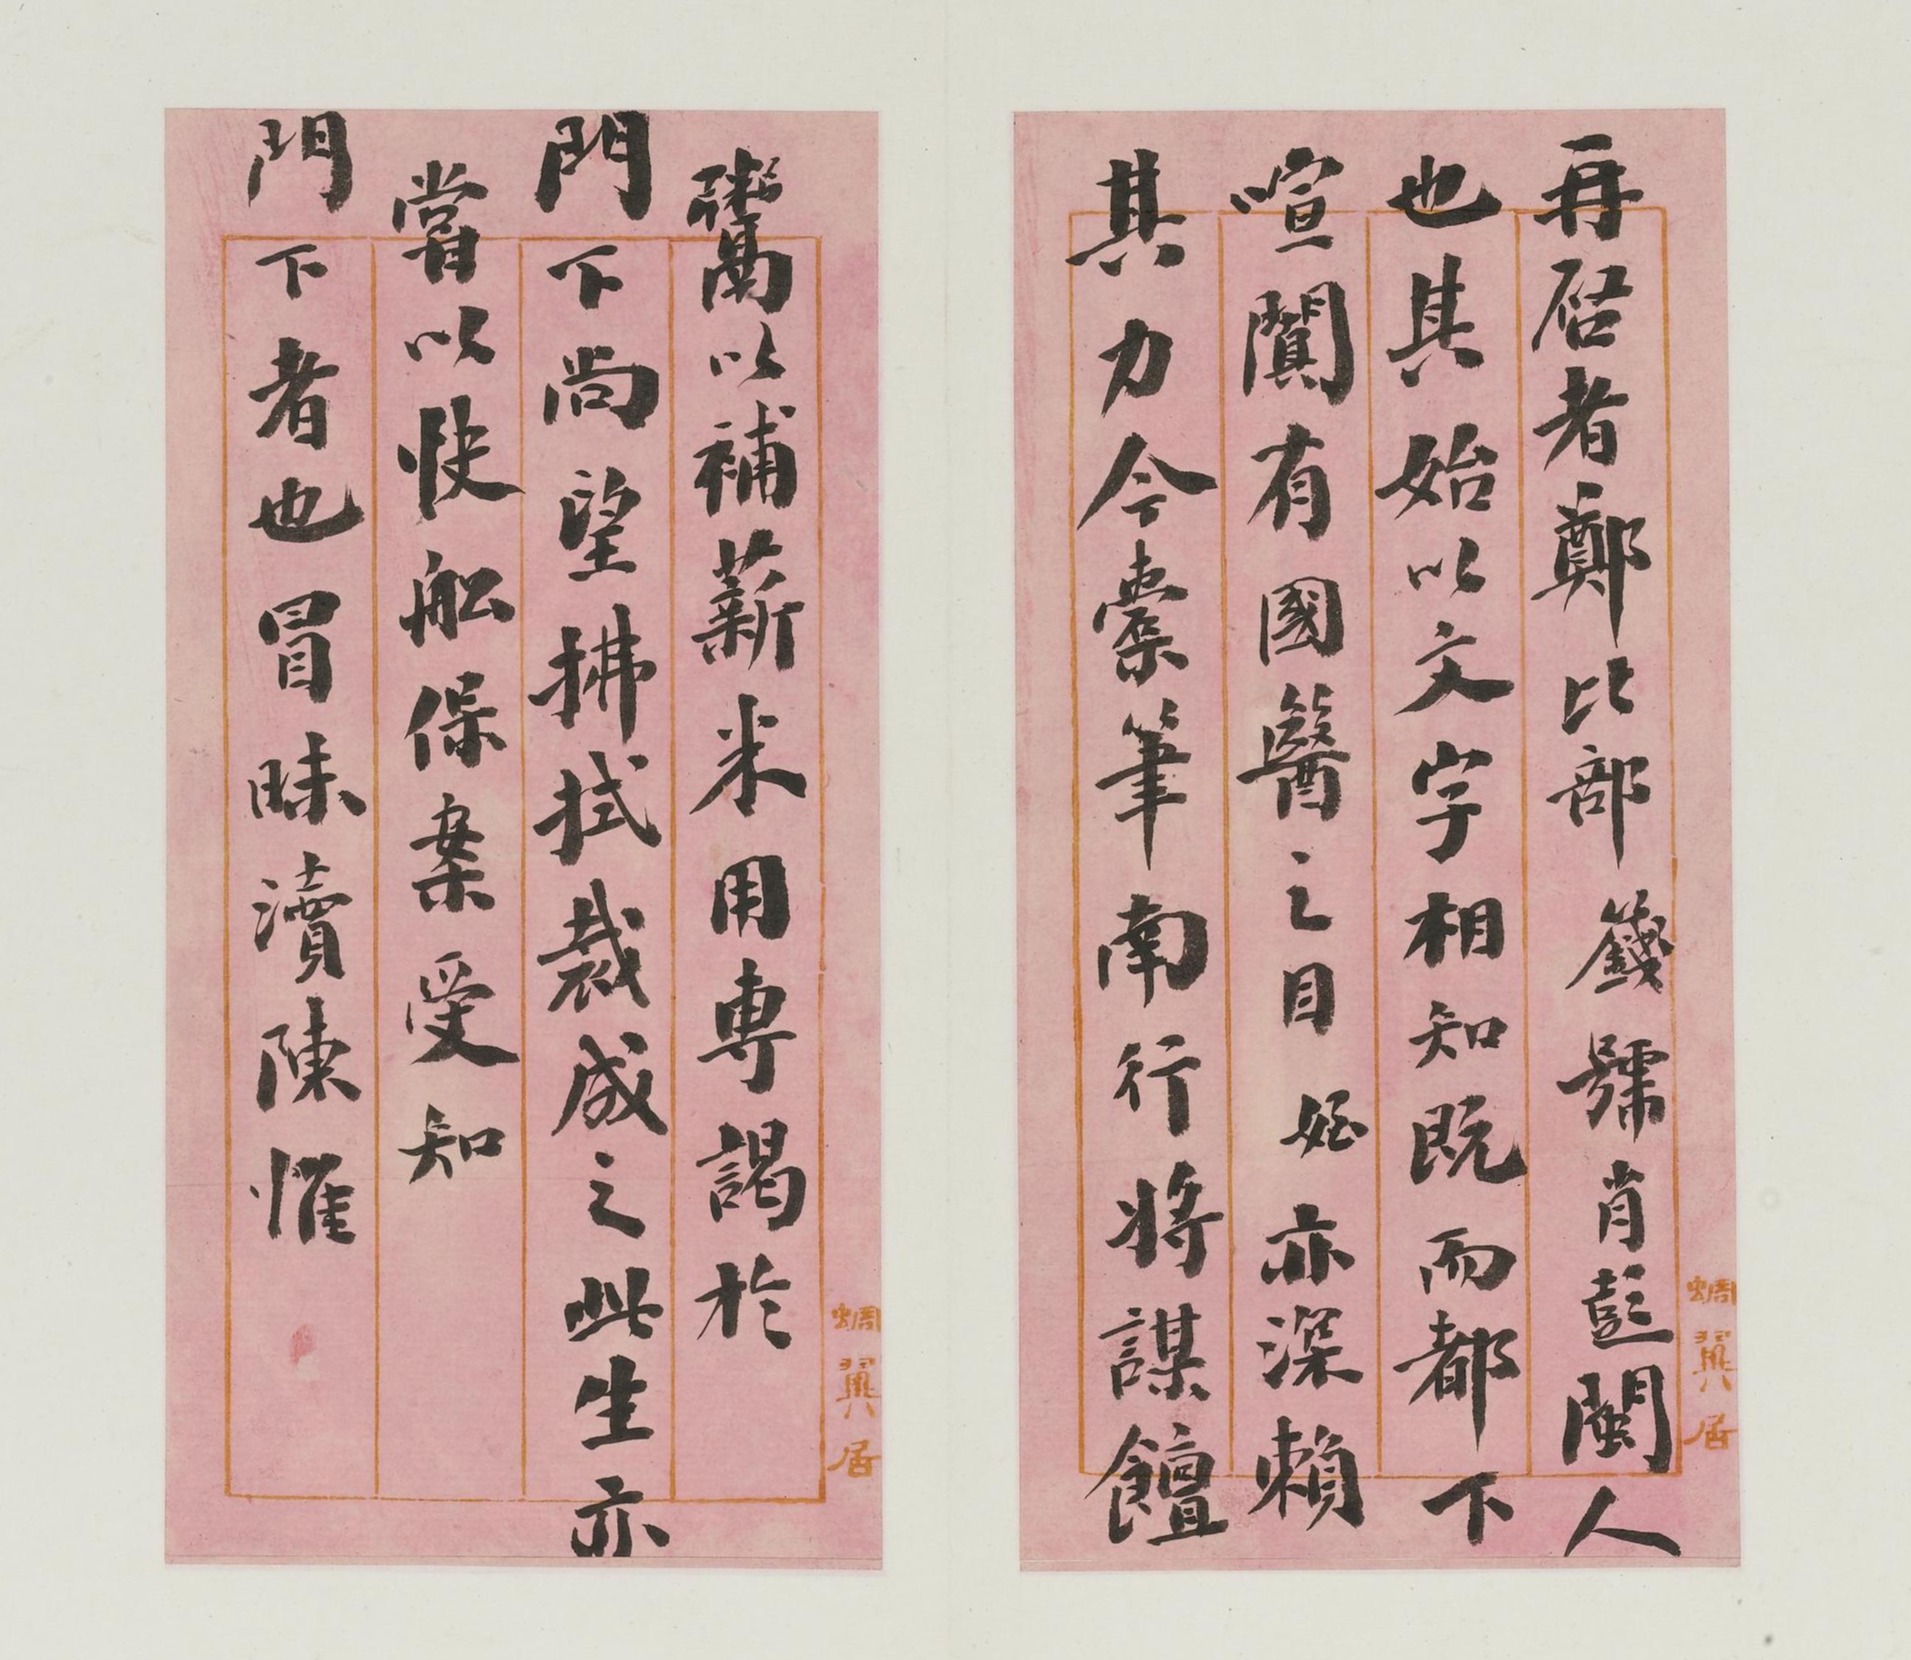 再启者鄭比部籛號肖彭閩人
也其始以文字相知既而都下
喧闐有國醫之目姪亦深賴
其力今橐筆南行將謀饘
蜩翼居
鬻以補薪米用專謁於
門下尚望拂拭裁成之此生亦
嘗以快舩保案受知
門下者也冒昧瀆陳惟
蜩翼居